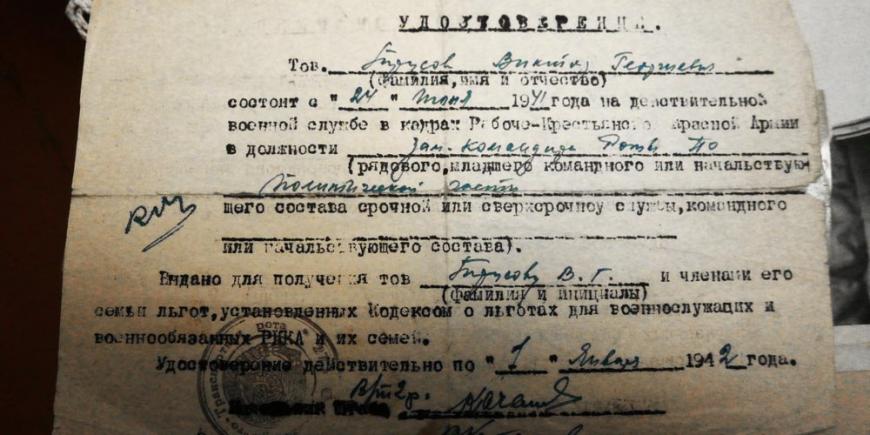 УДОСТОВЕРЕНИЕ.
Тов. Виктор Георгиевич
(фамилия,имя и отчество)
состоит с "24" Июня 1941 года на действительной
военной службе в кадрах Рабоче-Крестьянской Красной Армии
в должности Зам. Командира Роты По
(рядового,младшего командного или начальствую-
Политической части
щего состава срочной или сверхсрочной службы,командного
или начальствующего состава).
Выдано для получения тов В. Г. и членами его
(фамилия и инициалы)
семьи льгот,установленных Кодексом о льготах для военнослужащих и
военнообязанных РККА и их семей.
Удостоверение действительно по "1" Января 1942 года.